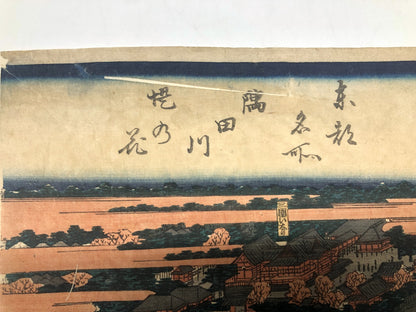 東都
名所
隅
田
川
堤乃
花